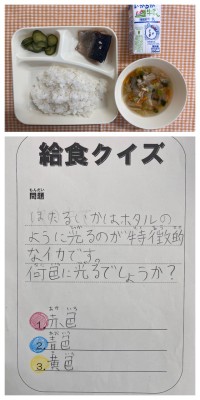 給食クイズ
もんだい
問題
ほたるいかはホタルの
ように光るのが特徴的
なイカです。
何色に光るでしょうか?
1. 赤色
2. 青色
3. 黄色